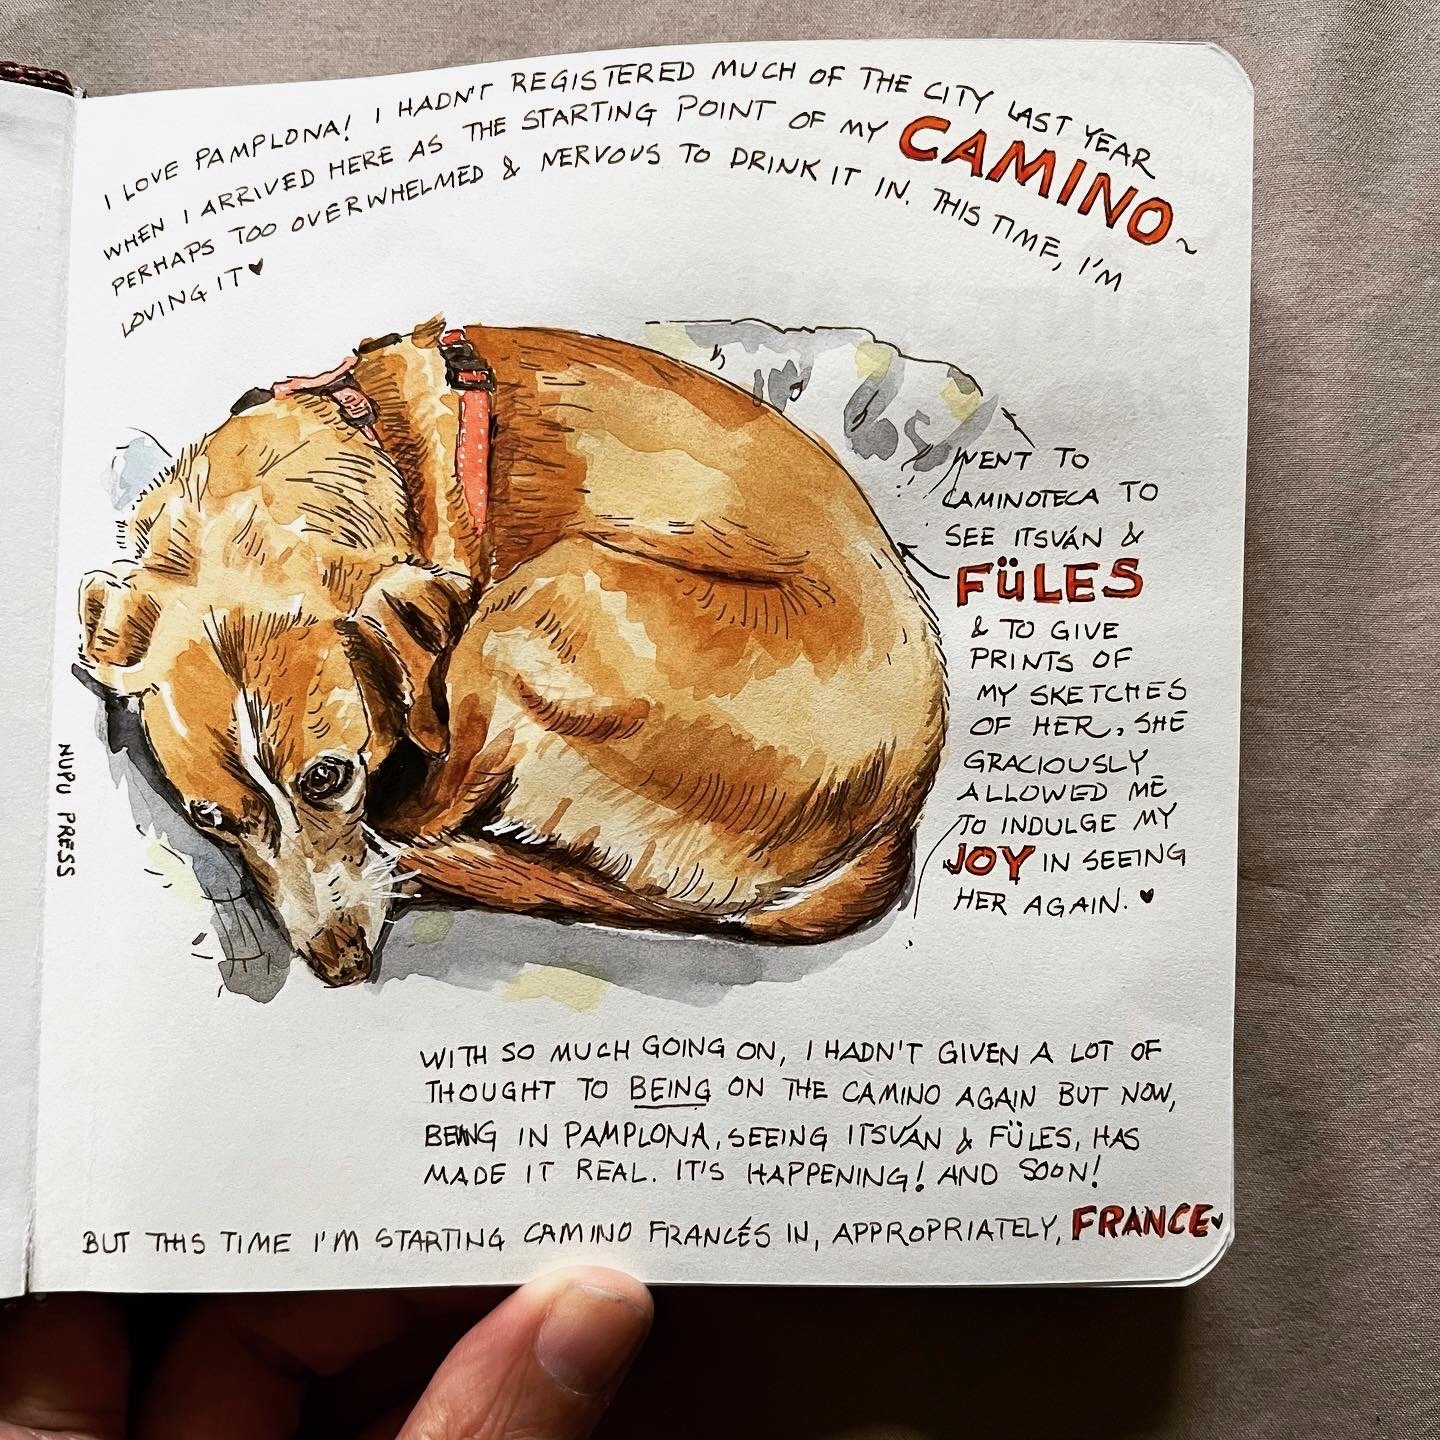 I LOVE PAMPLONA! I HADN'T REGISTERED MUCH OF THE CITY LAST YEAR
WHEN I ARRIVED HERE AS THE STARTING POINT OF MY CAMINO~
PERHAPS TOO OVERWHELMED & NERVOUS TO DRINK IT IN. THIS TIME, I'M
LOVING IT♥
WENT TO
CAMINOTECA TO
SEE ITSVÁN &
FÜLES
& TO GIVE
PRINTS OF
MY SKETCHES
OF HER. SHE
GRACIOUSLY
ALLOWED ME
TO INDULGE MY
JOY IN SEEING
HER AGAIN. ♥
NUPU PRESS
WITH SO MUCH GOING ON, I HADN'T GIVEN A LOT OF
THOUGHT TO BEING ON THE CAMINO AGAIN BUT NOW,
BEING IN PAMPLONA, SEEING ITSVÁN & FÜLES, HAS
MADE IT REAL. IT'S HAPPENING! AND SOON!
BUT THIS TIME I'M STARTING CAMINO FRANCÉS IN, APPROPRIATELY, FRANCE♥